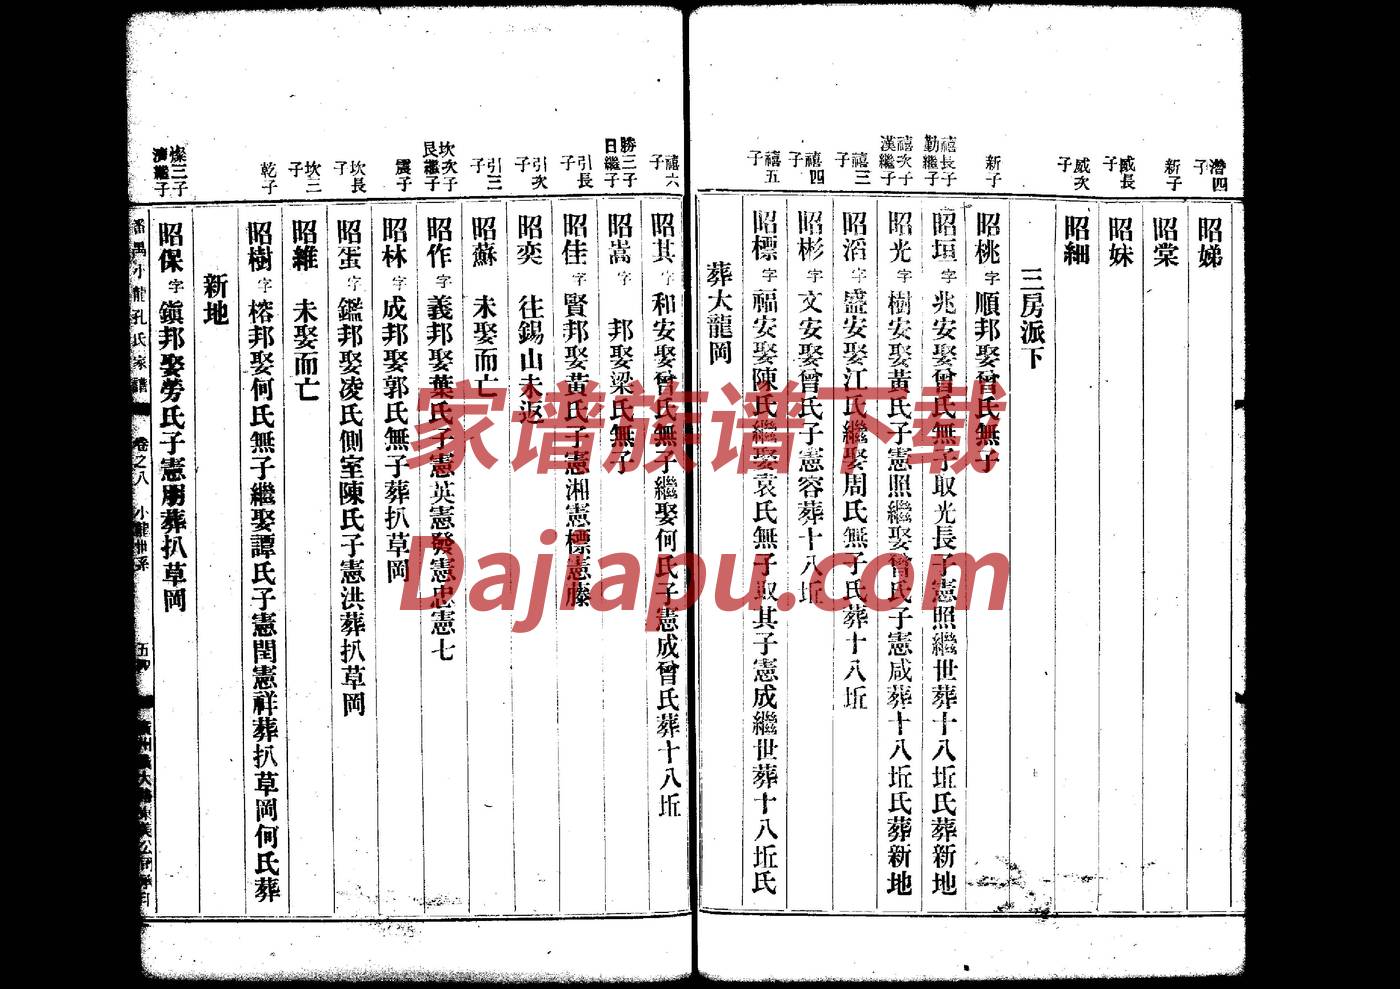 潛四子
昭娣
新子
昭棠
威長子
昭妹
威次子
昭細
三房派下
新子
昭桃字順邦娶曾氏無子
禧長子勤繼子
昭垣字兆安娶曾氏無子取光長子憲照繼世葬十八坵氏葬新地
禧次子漢繼子
昭光字樹安娶黃氏子憲照繼娶曾氏子憲咸葬十八坵氏葬新地
禧三子
昭滔字盛安娶江氏繼娶周氏無子氏葬十八坵
禧四子
昭彬字文安娶曾氏子憲容葬十八坵
禧五子
昭標字福安娶陳氏繼娶袁氏無子取其子憲成繼世葬十八坵氏
葬大龍岡
禧六子
昭其字和安娶曾氏無子繼娶何氏子憲成曾氏葬十八坵
勝三子日繼子
昭嵩字邦娶梁氏無子
引長子
昭佳字賢邦娶黃氏子憲湘憲標憲滕
引次子
昭奕往錫山未返
引三子
昭蘇未娶而亡
坎次子艮繼子
昭作字義邦娶葉氏子憲英憲發憲忠憲七
震子
昭林字成邦娶郭氏無子葬扒草岡
坎長子
昭蛋字鑑邦娶凌氏側室陳氏子憲洪葬扒草岡
坎三子
昭維未娶而亡
乾子
昭樹字榕邦娶何氏無子繼娶譚氏子憲閏憲祥葬扒草岡何氏葬
新地
燦三子濟繼子
昭保字鎮邦娶勞氏子憲朋葬扒草岡
番禺小龍孔氏家譜
卷之八
小龍世系
家谱族谱下载
Dajiapu.com